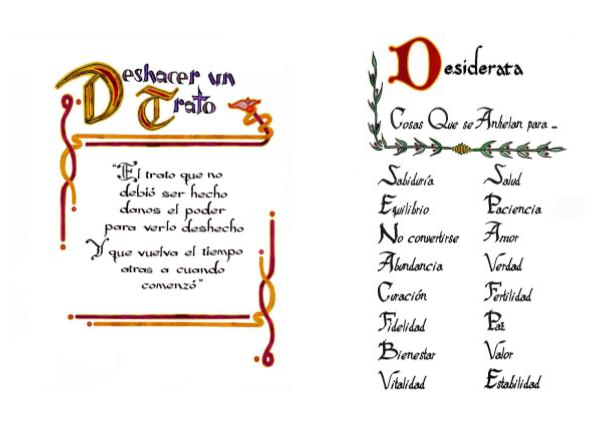 Deshacer un
Trato
"El trato que no
debió ser hecho
danos el poder
para verlo deshecho
Y que vuelva el tiempo
atras a cuando
comenzó"
Desiderata
Cosas Que se Anhelan para...
Sabiduría
Equilibrio
No convertirse
Abundancia
Curación
Fidelidad
Bienestar
Vitalidad
Salud
Paciencia
Amor
Verdad
Fertilidad
Paz
Valor
Estabilidad